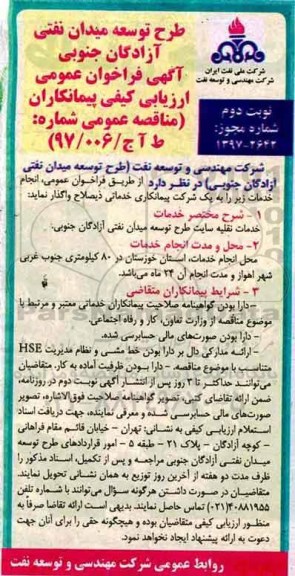 شرکت ملی نفت ایران
شرکت مهندسی و توسعه نفت
طرح توسعه میدان نفتی
آزادگان جنوبی
آگهی فراخوان عمومی
ارزیابی کیفی پیمانکاران
(مناقصه عمومی شماره:
ط آ ج/۹۷/۰۰۶)
نوبت دوم
شماره مجوز:
۱۳۹۷-۲۶۲۳
شرکت مهندسی و توسعه نفت (طرح توسعه میدان نفتی
آزادگان جنوبی) در نظر دارد از طریق فراخوان عمومی، انجام
خدمات زیر را به یک شرکت پیمانکاری خدماتی ذیصلاح واگذار نماید:
۱- شرح مختصر خدمات
خدمات نقلیه سایت طرح توسعه میدان نفتی آزادگان جنوبی.
۲- محل و مدت انجام خدمات
محل انجام خدمات، استان خوزستان در ۸۰ کیلومتری جنوب غربی
شهر اهواز و مدت انجام آن ۲۴ ماه می‌باشد.
۳- شرایط پیمانکاران متقاضی
- دارا بودن گواهینامه صلاحیت پیمانکاران خدماتی معتبر و مرتبط با
موضوع مناقصه از وزارت تعاون، کار و رفاه اجتماعی.
- دارا بودن صورت‌های مالی حسابرسی شده.
- ارائه مدارکی دال بر دارا بودن خط مشی و نظام مدیریت HSE
متناسب با موضوع مناقصه. - دارا بودن ظرفیت آماده به کار. متقاضیان
می‌توانند حداکثر تا ۳ روز پس از انتشار آگهی نوبت دوم در روزنامه،
ضمن ارائه تقاضای کتبی، تصویر گواهینامه صلاحیت فوق‌الاشاره، تصویر
صورت‌های مالی حسابرسی شده و معرفی نماینده، جهت دریافت اسناد
استعلام ارزیابی کیفی به نشانی: تهران - خیابان قائم مقام فراهانی
- کوچه آزادگان - پلاک ۲۱ - طبقه ۵ - امور قراردادهای طرح توسعه
میدان نفتی آزادگان جنوبی مراجعه و پس از تکمیل، اسناد مذکور را
ظرف مدت دو هفته از آخرین روز توزیع به همان نشانی تحویل نمایند.
متقاضیان در صورت داشتن هرگونه سؤال می‌توانند با شماره تلفن
۴۰۸۸۱۹۵۵(۰۲۱) تماس حاصل نمایند. بدیهی است ارائه تقاضا صرفاً به
منظور ارزیابی کیفی متقاضیان بوده و هیچگونه حقی را برای آنان جهت
دعوت به ارائه پیشنهاد ایجاد نخواهد نمود.
روابط عمومی شرکت مهندسی و توسعه نفت